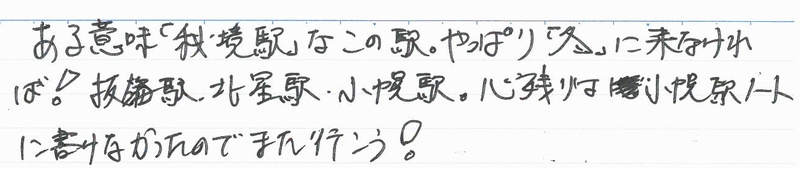 ある意味「秘境駅」なこの駅。やっぱり「冬」に来なけれ
ば！抜海駅.北星駅.小幌駅。心残りは小幌駅ノート
に書けなかったのでまた行こう！